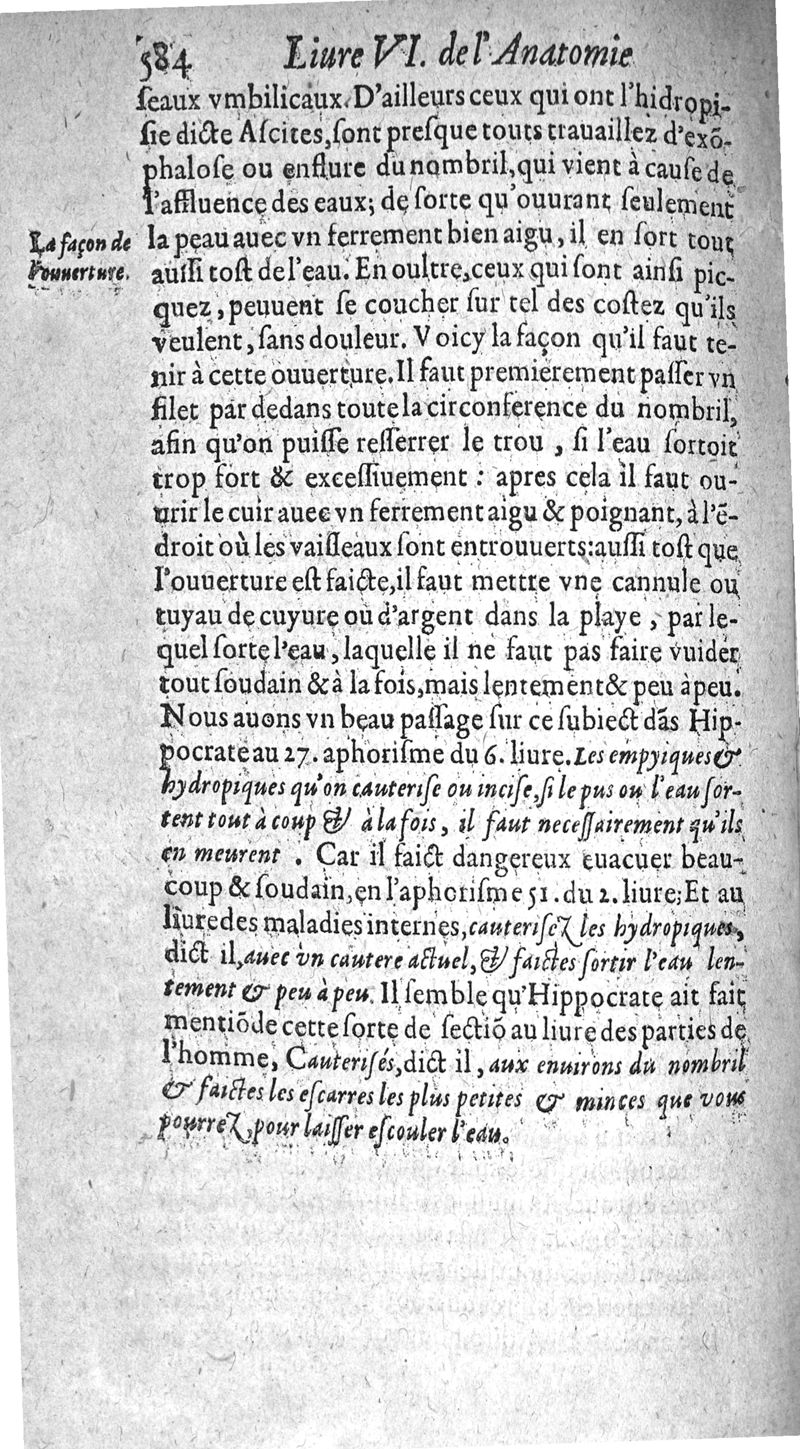 584 Liure VI. de l'Anatomie
ſeaux vmbilicaux. D'ailleurs ceux qui ont l'hidropi-
ſie dicte Aſcites, ſont preſque touts trauaillez d'exō-
phaloſe ou enflure du nombril, qui vient à cauſe de
l'affluence des eaux; de ſorte qu'ouurant ſeulement
La façon de
l'ouuerture.
la peau auec vn ferrement bien aigu, il en ſort tout
auſſi toſt de l'eau. En oultre, ceux qui ſont ainſi pic-
quez, peuuent ſe coucher ſur tel des coſtez qu'ils
veulent, ſans douleur. Voicy la façon qu'il faut te-
nir à cette ouuerture. Il faut premierement paſſer vn
filet par dedans toute la circonference du nombril,
afin qu'on puiſſe reſſerrer le trou, ſi l'eau ſortoit
trop fort & exceſſiuement : apres cela il faut ou-
urir le cuir auec vn ferrement aigu & poignant, à l'ē-
droit où les vaiſſeaux ſont entrouuerts: auſſi toſt que
l'ouuerture eſt faicte, il faut mettre vne cannule ou
tuyau de cuyure ou d'argent dans la playe, par le-
quel ſorte l'eau, laquelle il ne faut pas faire vuider
tout ſoudain & à la fois, mais lentement & peu à peu.
Nous auons vn beau paſſage ſur ce ſubiect dās Hip-
pocrate au 27. aphoriſme du 6. liure. Les empyiques &
hydropiques qu'on cauteriſe ou inciſe, ſi le pus ou l'eau ſor-
tent tout à coup & à la fois, il faut neceſſairement qu'ils
en meurent. Car il faict dangereux euacuer beau-
coup & ſoudain, en l'aphoriſme 51. du 2. liure; Et au
liure des maladies internes, cauteriſez les hydropiques,
dict il, auec vn cautere actuel, & faictes ſortir l'eau len-
tement & peu à peu. Il ſemble qu'Hippocrate ait fait
mentiō de cette ſorte de ſectiō au liure des parties de
l'homme, Cauteriſés, dict il, aux enuirons du nombril
& faictes les eſcarres les plus petites & minces que vous
pourrez, pour laiſſer eſcouler l'eau.